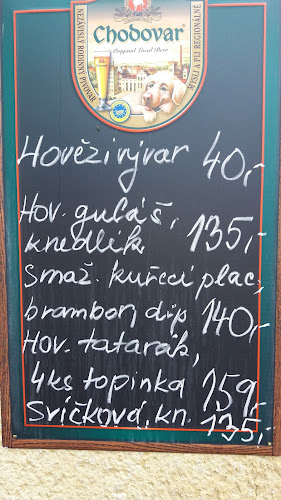 NEZÁVISLÝ RODINNÝ PIVOVAR
MYSLI A PIJ REGIONÁLNĚ
Chodovar
Original Local Beer
Hovězí vývar 40,-
Hov. guláš,
knedlík 135,-
Smaž. kuřecí plac,
brambor, dip 140,-
Hov. tatarák,
4ks topinka 159,-
Svíčková, kn. 135,-